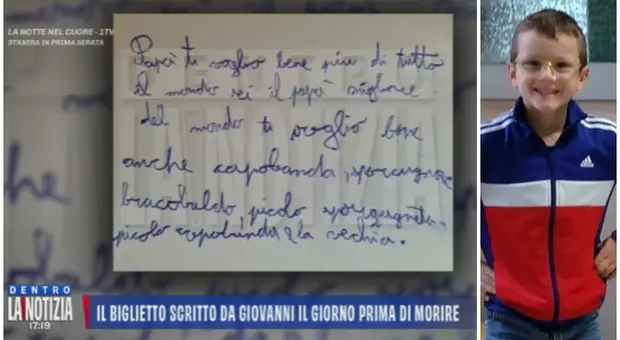 LA NOTTE NEL CUORE - 1TV
STASERA IN PRIMA SERATA
Papà ti voglio bene piu di tutto
il mondo sei il papà migliore
del mondo ti voglio bene
anche capobanda,
bracobaldo picolo
picolo capobanda la vechia.
DENTRO
LA NOTIZIA
17:19
IL BIGLIETTO SCRITTO DA GIOVANNI IL GIORNO PRIMA DI MORIRE
adidas